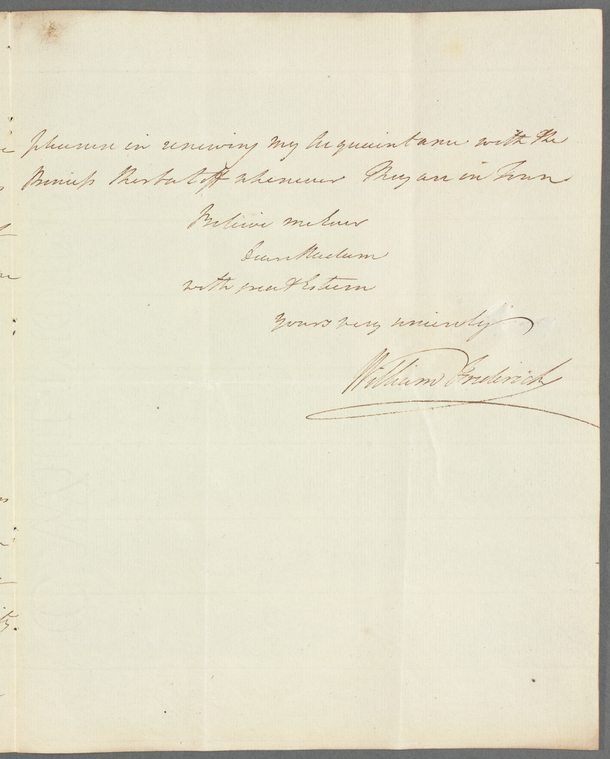 pleasure in renewing my Acquaintance with the
Princess Sherbatoff whenever They are in Town
Believe me Ever
Dear Madam
with great Esteem
yours very sincerely
William Frederick